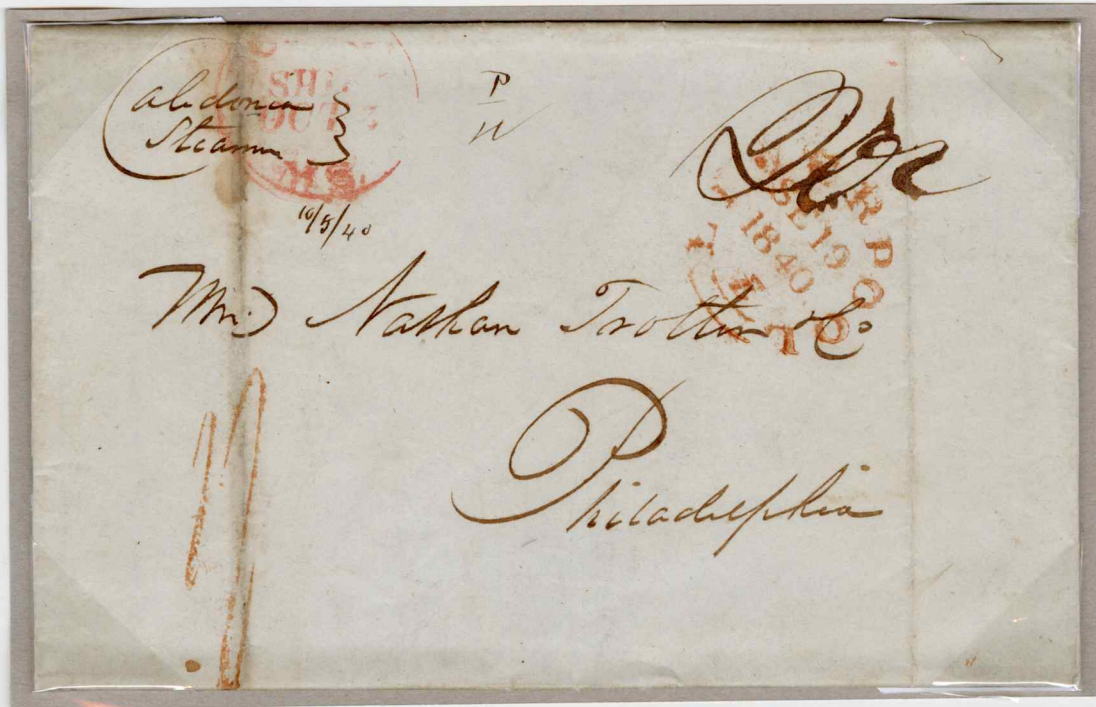 Caledonia
Steamer
SHIP
OCT
MS.
P
10/5/40
LIVERPOOL
SE 19
1840
Mr. Nathan Trotter & Co
Philadelphia